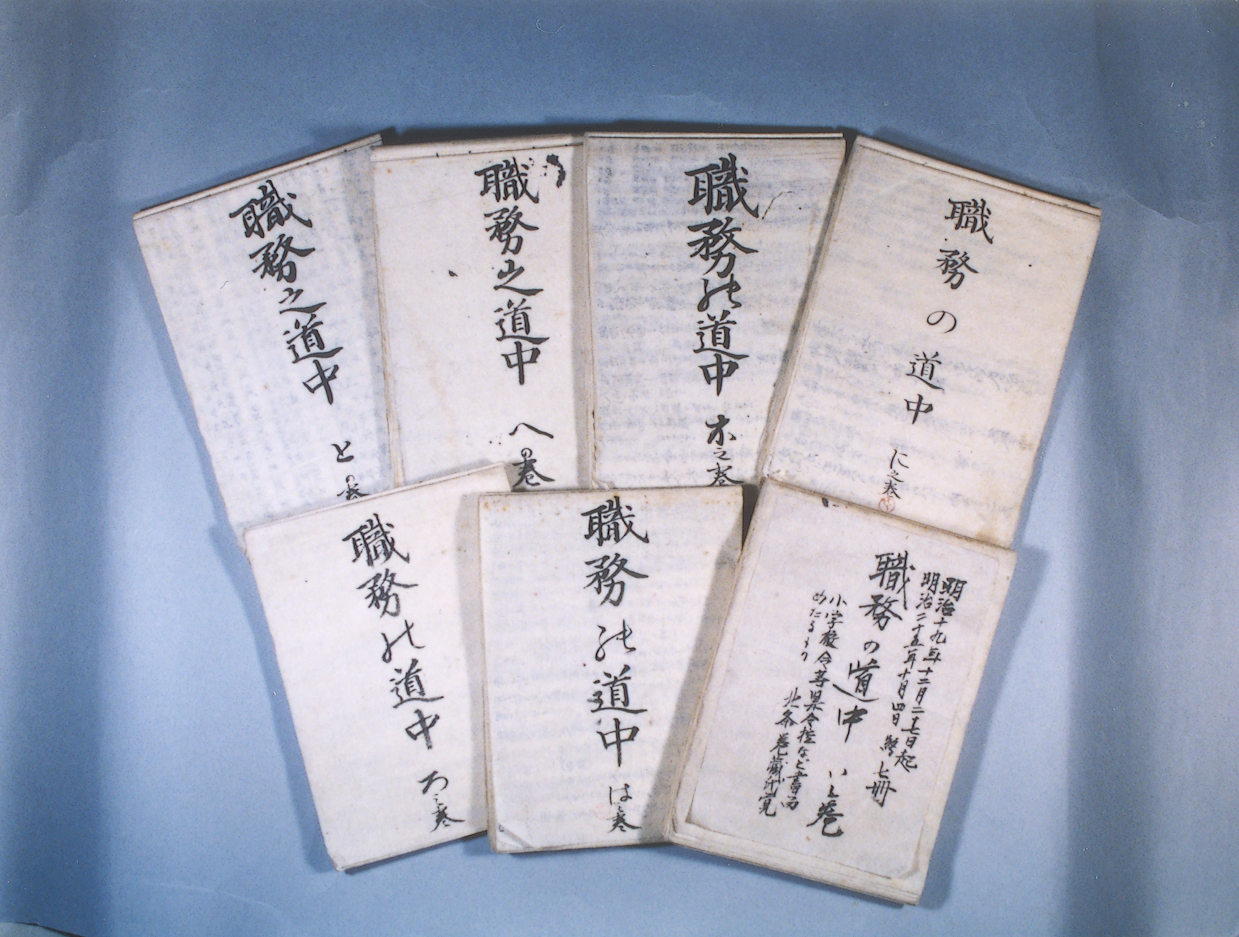 職務の道中 に之巻
職務能道中 ホ之巻
職務之道中 への巻
職務之道中 との巻
明治十九年十二月二十七日起
明治二十五年十月四日終 七冊
職務の道中 いの巻
小学校令等県令
など書
めたるもの
北条
職務能道中 はの巻
職務能道中 ろの巻